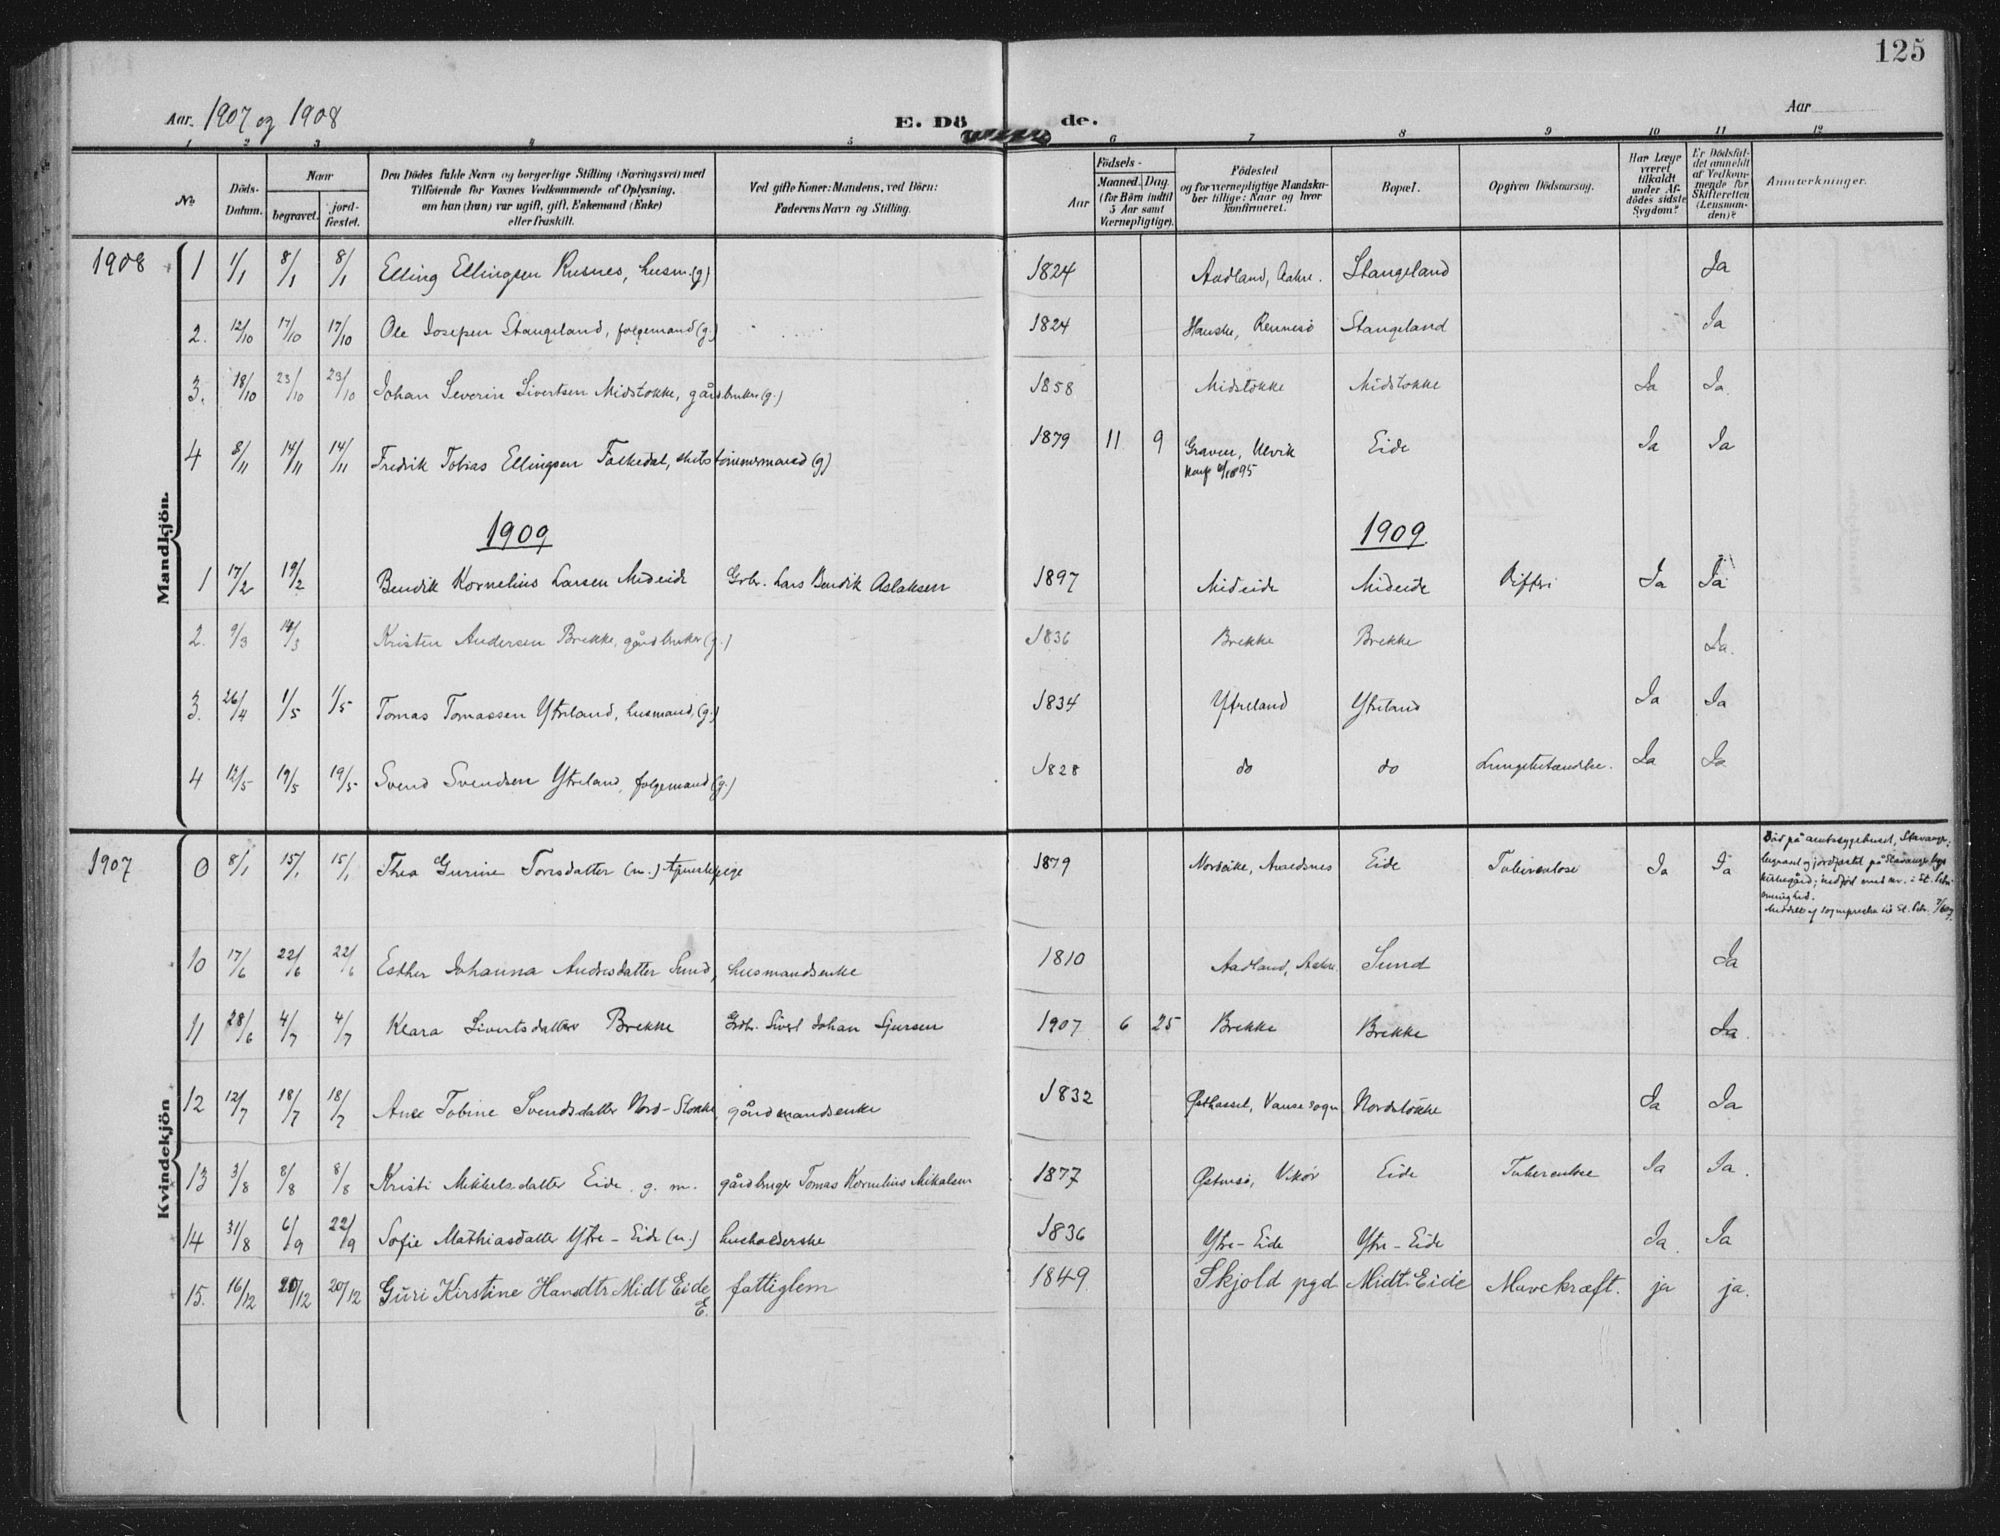 125
Aar. 1907 og 1908
E. Dö de.
Aar
1 2 3 4 5 6 7 8 9 10 11 12
No.
Döds-Datum.
Naar
begravet.
jord-fæstet.
Den Dödes fulde Navn og borgerlige Stilling (Næringsvei) med
Tilföiende for Voxnes Vedkommende af Oplysning,
om han (hun) var ugift, gift, Enkemand (Enke)
eller fraskilt.
Ved gifte Koner: Mandens, ved Börn:
Faderens Navn og Stilling.
Födsels-
Aar
Maaned. Dag.
(for Börn indtil
5 Aar samt
Værnepligtige).
Födested
og for værnepligtige Mandska-
ber tillige: Naar og hvor
konfirmeret.
Bopæl.
Opgiven Dödsaarsag.
Har Læge
været
tilkaldt
under Af-
dödes sidste
Sygdom?
Er Dödsfal-
det anmeldt
af Vedkom-
mende for
Skifteretten
(Lensman-
den)?
Anmærkninger.
Mandkjön.
1908
1 1/1 8/1 8/1 Elling Ellingsen Rusnes, husm. (g) 1824 Aadland, Aakre. Stangeland Ja
2. 12/10 17/10 17/10 Ole Josepsen Stangeland, folgemand (g.) 1824 Hauske, Rennesö Stangeland Ja
3. 18/10 23/10 23/10 Johan Severin Sivertsen Midstokke, gårdbruker (g.) 1858 Midstokke Midstokke Ja Ja
4 8/11 14/11 14/11 Fredrik Tobias Ellingsen Folkedal, skibstömmermand (g) 1879 11 9 Graven, Ulvik Eide Ja Ja
1909 1909
1 17/2 19/2 Bendik Kornelius Larsen Mideide Grbr. Lars Bendik Aslaksen 1897 Mideide Mideide Difteri Ja Ja
2. 9/3 14/3 Kristen Andersen Brekke, gårdbruker (g.) 1836 Brekke Brekke Ja.
3. 26/4 1/5 1/5 Tomas Tomassen Ytreland, husmand, (g.) 1834 Ytreland Ytreland Ja Ja
4 12/5 19/5 19/5 Svend Svendsen Ytreland, folgemand (g.) 1828 do do Lungebetændelse. Ja Ja
Kvindekjön
1907
0 8/1 15/1 15/1 Thea Gurine Torisdatter (u.) tjenestepige 1879 Nordvike, Avaldsnes Eide Tuberculose Ja Ja Död på amtssygehuset, Stavanger;
begravet og jordfæstet på Stavanger
kirkegård; indfört med nr. i St. Petri
menighed.
10 17/6 22/6 22/6 Esther Johanna Andersdatter Sund, husmandsenke 1810 Aadland, Aakre Sund Ja
11 28/6 4/7 4/7 Klara Sivertsdatter Brekke Grbr. Sivert Johan Sjursen 1907 6 25 Brekke Brekke Ja.
12 12/7 18/7 18/7 Ane Tobine Svendsdatter Nord-Stokke, gårdmandsenke 1832 Östhassel, Vanse sogn Nordstokke Ja Ja
13 3/8 8/8 8/8 Kristi Mikkelsdatter Eide g. m. gårdbruger Tomas Kornelius Mikalsen 1877 Östensö, Vikör Eide Tuberculose Ja Ja.
14 31/8 6/9 22/9 Sofie Mathiasdatter Ytre-Eide (u.) husholderske 1836 Ytre-Eide Ytre-Eide Ja. Ja
15. 16/12 20/12 20/12 Guri Kirstine Hansdtr Midt Eide E. fattiglem 1849 Skjold pgd Midt Eide Mavekræft. ja ja.